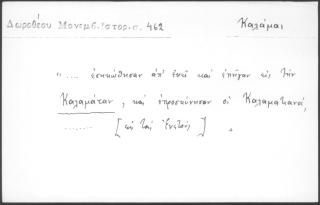 Δωροθέου Μονεμβ. Ἱστορ. σ. 462
Καλάμαι
".... ἐσηκώθησαν ἀπ' ἐκεῖ καὶ ἐπῆγαν εἰς τὴν
Καλαμάταν, καὶ ἐπροσκύνησαν οἱ Καλαματιανοὶ,
........ [εἰς τοὺς Ἑνετούς] "